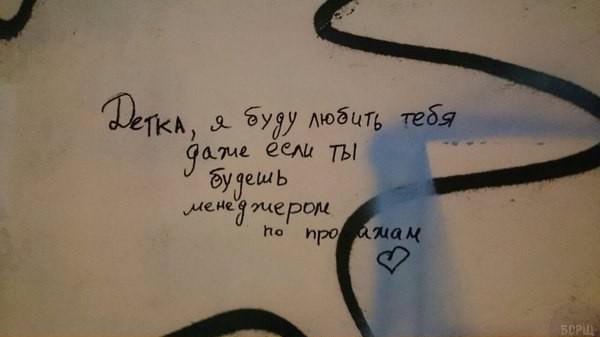 Детка, я буду любить тебя
даже если ты
будешь
менеджером
по продажам
ВСРЩ